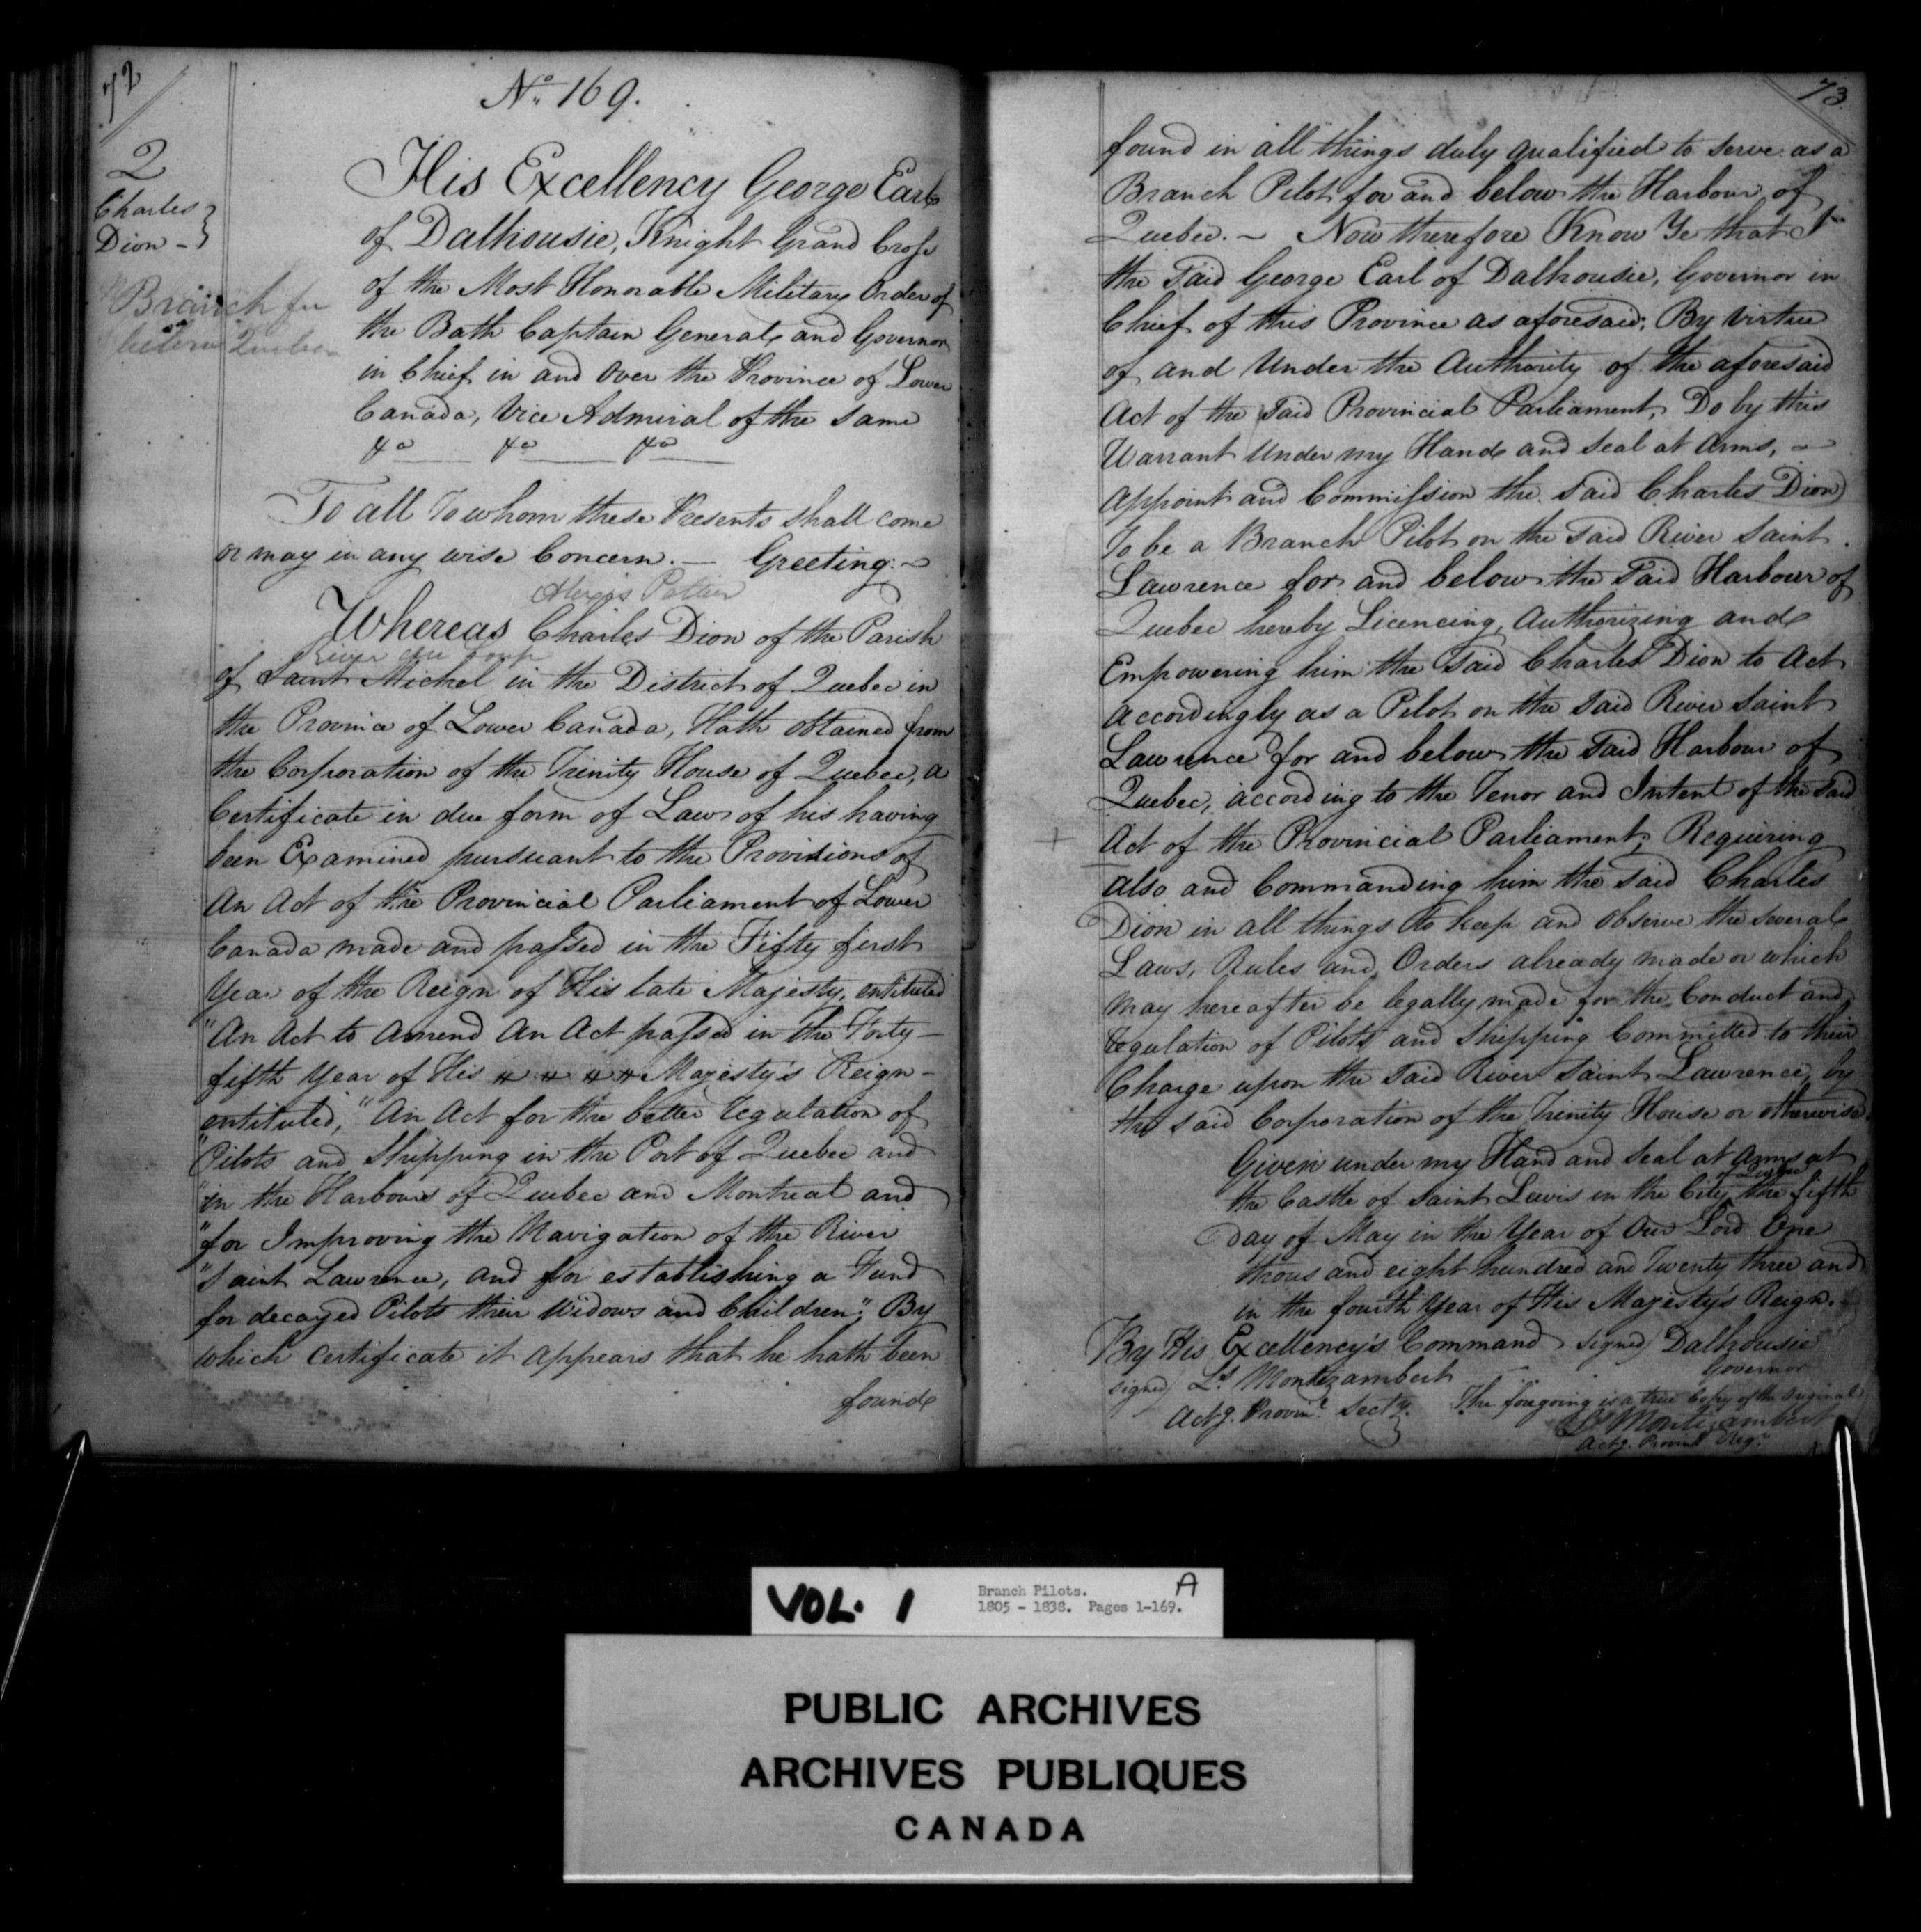 72
No. 169.
2
Charles
Dion -
Branch for
below Quebec
His Excellency George Earl
of Dalhousie, Knight Grand Cross
of the Most Honorable Military Order of
the Bath Captain General and Governor
in Chief in and Over the Province of Lower
Canada, Vice Admiral of the same
&a &a &a
To all To whom these Presents shall come
or may in any wise Concern. — Greeting. ~
Alexis Pettier
Whereas Charles Dion of the Parish
River du Loup
of Saint Michel in the District of Quebec in
the Province of Lower Canada, Hath obtained from
the Corporation of the Trinity House of Quebec, a
Certificate in due form of Law of his having
been Examined pursuant to the Provisions of
An Act of the Provincial Parliament of Lower
Canada made and passed in the Fifty first
Year of the Reign of His late Majesty, entituled
"An Act to Amend An Act passed in the Forty-
fifth Year of His Majesty's Reign -
entituled, "An Act for the better regulation of
"Pilots and Shipping in the Port of Quebec and
"in the Harbours of Quebec and Montreal and
"for Improving the Navigation of the River
"Saint Lawrence, and for establishing a Fund
for decayed Pilots their Widows and Children": By
which Certificate it appears that he hath been
found
73
found in all things duly qualified to serve as a
Branch Pilot for and below the Harbour of
Quebec. ~ Now therefore Know Ye that I
the said George Earl of Dalhousie, Governor in
Chief of this Province as aforesaid; By virtue
of and Under the Authority of the aforesaid
Act of the said Provincial Parliament, Do by this
Warrant Under my Hand and Seal at Arms, ~
Appoint and Commission the said Charles Dion
To be a Branch Pilot on the said River Saint
Lawrence for and below the said Harbour of
Quebec hereby Licencing, Authorizing and
Empowering him the said Charles Dion to Act
accordingly as a Pilot on the said River Saint
Lawrence for and below the said Harbour of
Quebec, according to the Tenor and Intent of the said
+ Act of the Provincial Parliament; Requiring
also and Commanding him the said Charles
Dion in all things to keep and observe the several
Laws, Rules and Orders already made or which
may hereafter be legally made for the Conduct and
regulation of Pilots and Shipping Committed to their
Charge upon the said River Saint Lawrence, by
the said Corporation of the Trinity House or otherwise.
Given under my Hand and Seal at Arms at
of Quebec
the Castle of Saint Lewis in the City the fifth
Day of May in the Year of Our Lord One
thousand eight hundred and Twenty three and
in the fourth Year of His Majesty's Reign.
By His Excellency's Command signed) Dalhousie
Governor
signed) Ls. Montizambert
Actg. Provinl. Secty. The foregoing is a true Copy of the Original
Ls Montizambert
Actg. Provinl Regr.
VOL. 1
Branch Pilots. A
1805 - 1838. Pages 1-169.
PUBLIC ARCHIVES
ARCHIVES PUBLIQUES
CANADA